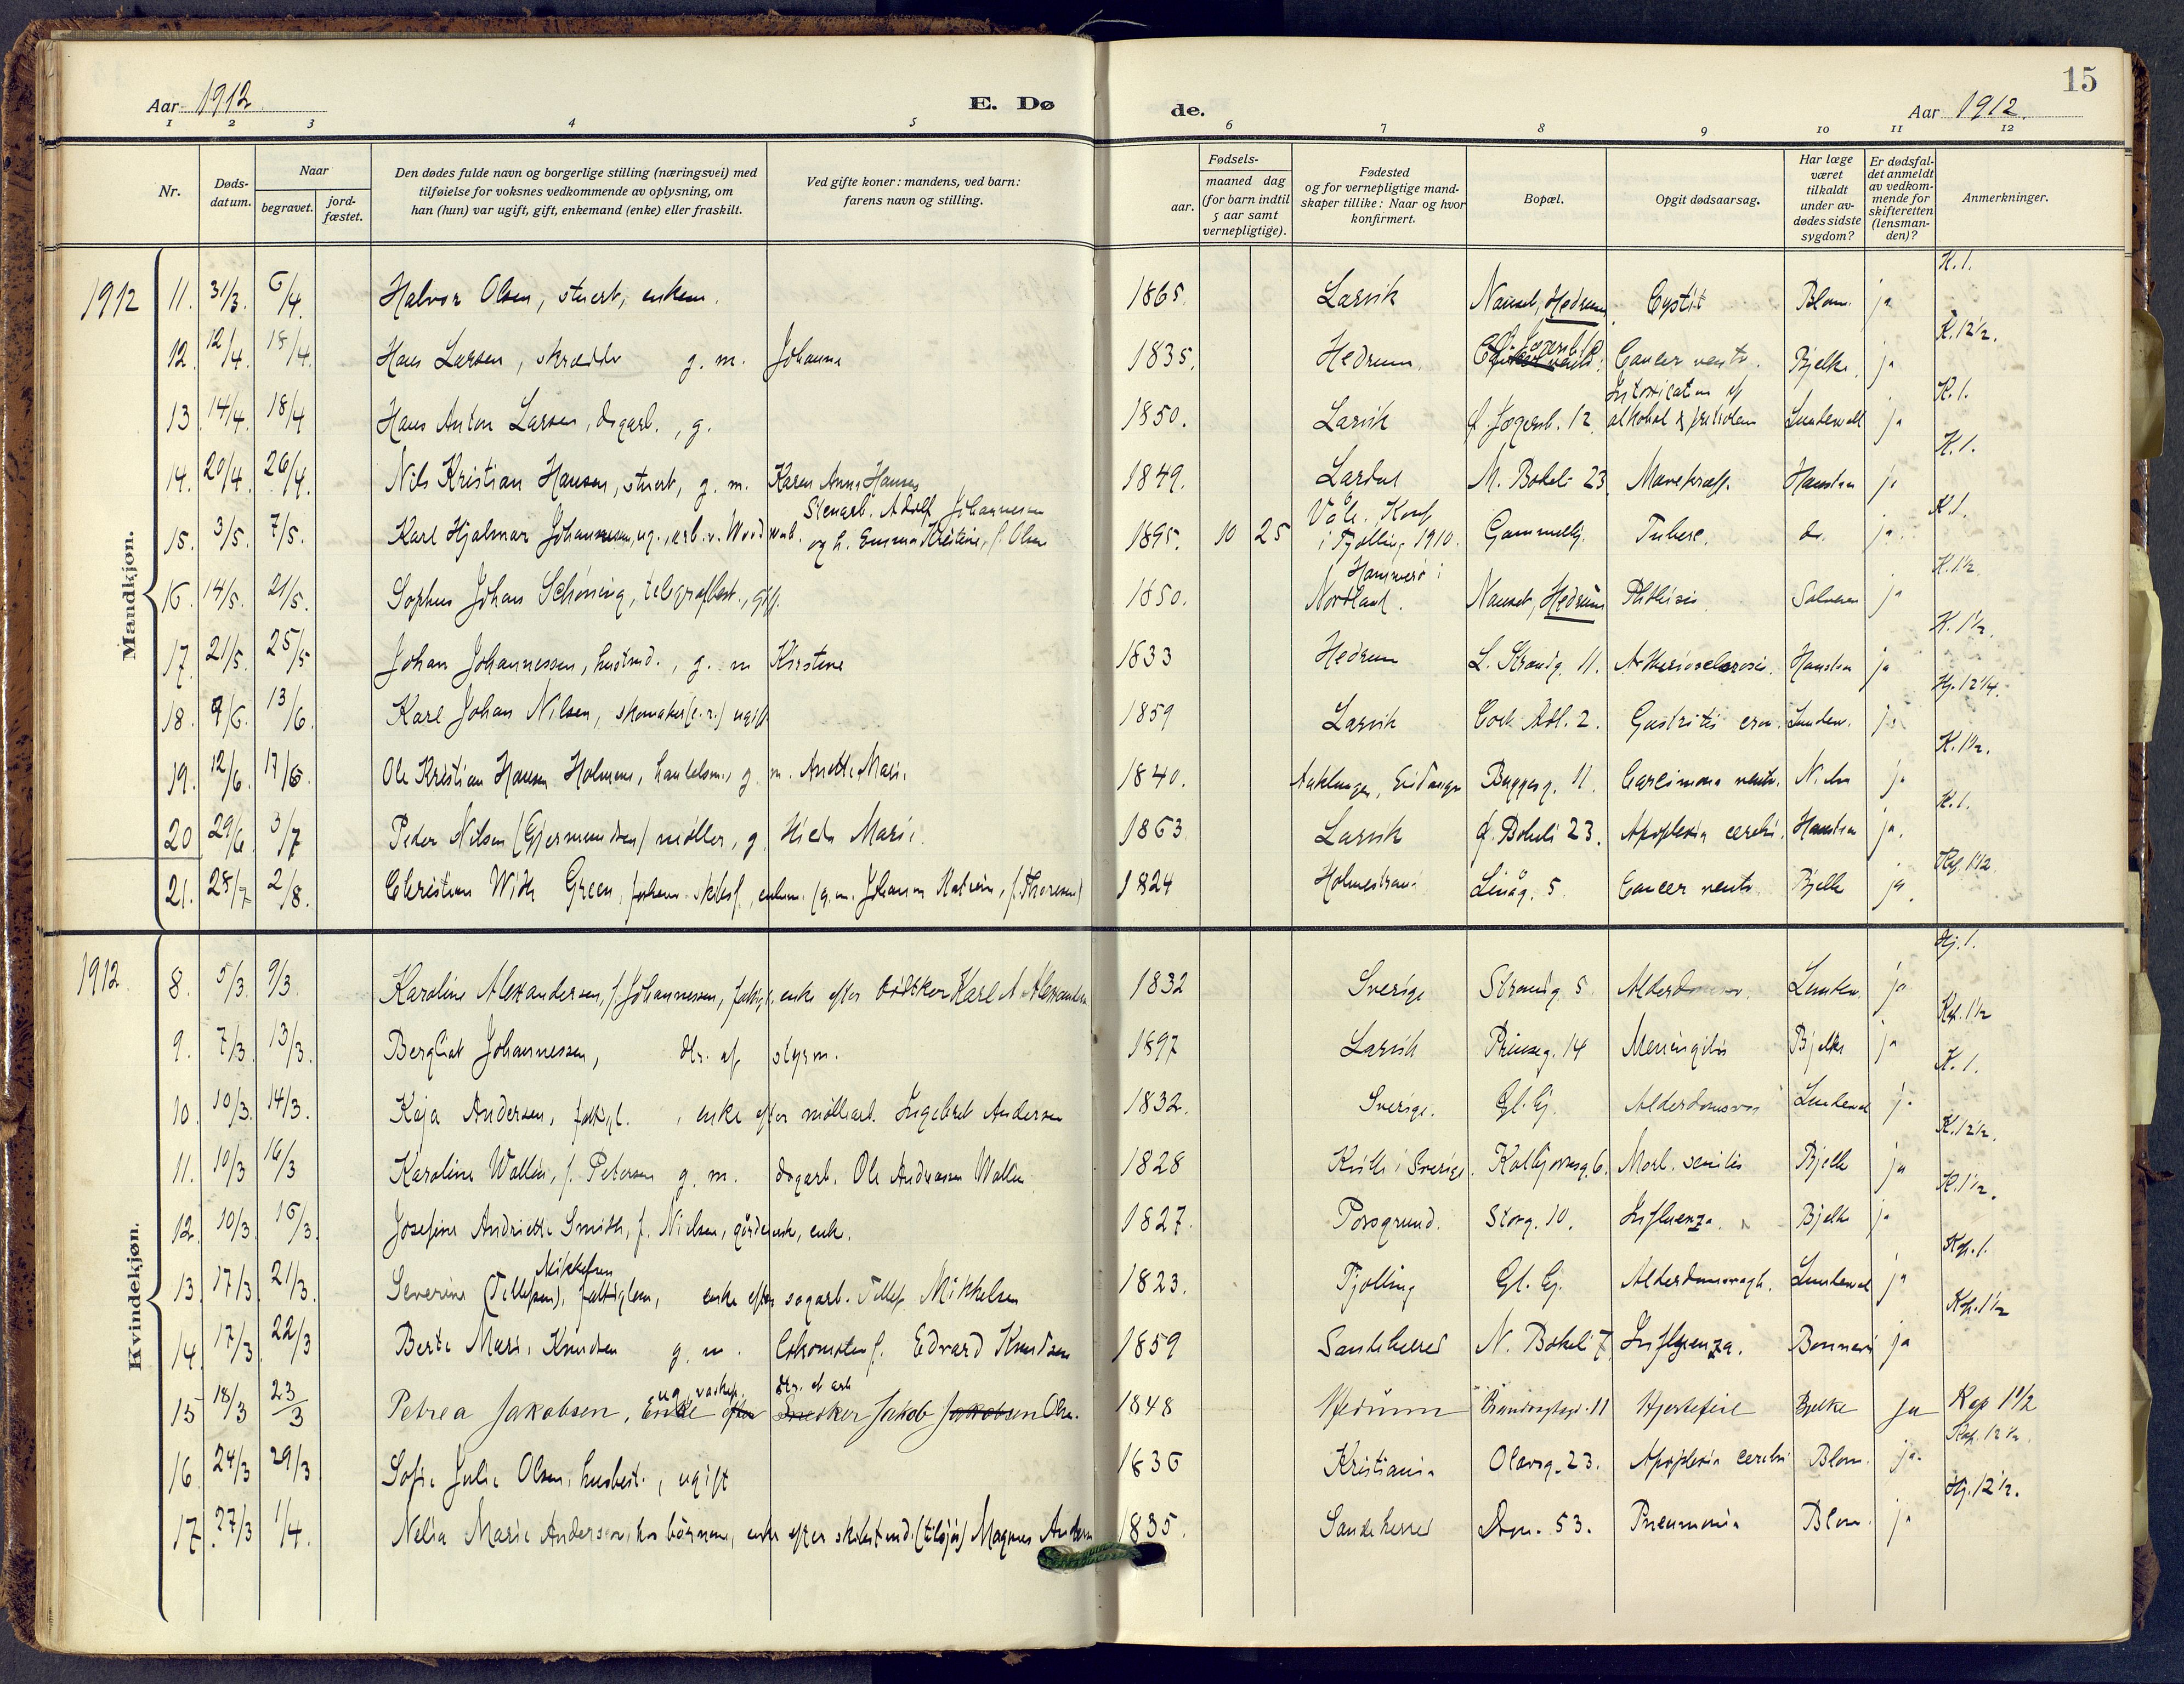 15
Aar 1912 E. Dø de. Aar 1912.
1 2 3 4 5 6 7 8 9 10 11 12
Nr. Døds-datum. Naar begravet. jord-fæstet. Den dødes fulde navn og borgerlige stilling (næringsvei) med tilføielse for voksnes vedkommende av oplysning, om han (hun) var ugift, gift, enkemand (enke) eller fraskilt. Ved gifte koner: mandens, ved barn: farens navn og stilling. Fødsels- aar. maaned dag (for barn indtil 5 aar samt vernepligtige). Fødested og for vernepligtige mandskaper tillike: Naar og hvor konfirmert. Bopæl. Opgit dødsaarsag. Har læge været tilkaldt under avdødes sidste sygdom? Er dødsfaldet anmeldt av vedkommende for skifteretten (lensmanden)? Anmerkninger.
Mandkjøn.
1912 11. 31/3. 6/4. Halvor Olsen, stuert, enkem. 1865. Larvik Nanset, Hedrum Cystit Blom. ja K. 1.
12. 12/4. 18/4. Hans Larsen, skrædder g. m. Johanne 1835. Hedrum. Cancer ventr. Bjelke. ja K. 12½.
13 14/4. 18/4 Hans Anton Larsen, dagarb., g. 1850. Larvik 12 Intoxication af alkohol & Lundewall ja K. 1.
14. 20/4. 26/4. Nils Kristian Hansen, stuert, g. m. Karen Anna Hansen 1849. Lardal M. Bøkeli 23 Mavekræft. Hanstein ja K. 1.
15. 3/5. 7/5. Karl Hjalmar Johannessen, ug., arb. v. Wood Stenarb. Adolf Johannessen og h. Emma Kristine, f. Olsen 1895. 10 25 Våle. Konf i Tjølling 1910. Gammelhj. Tuberc. do. ja. K. 1.
16. 14/5. 21/5. Sophus Johan Schöning, telegrafbest., gift. 1850. Hammerø i Nordland. Nanset, Hedrum Phthisis. Salvesen ja K. 1½
17. 21/5. 25/5 Johan Johannessen, g. m Kirstine 1833 Hedrum L. Strandg. 11. Arteriosclerosis. Hanstein ja K. 1½.
18. 9/6. 13/6. Karl Johan Nilsen, skomaker (e. r.) ugift 1859 Larvik Adl. 2. Gastritis Lundew. ja Hj. 12¼.
19. 12/6. 17/6. Ole Kristian Hansen Holmene, handelsm., g. m. Anette Marie 1840. Aaklungen, Eidanger Byggesg. 11. Carcinoma ventr. ja K. 1½.
20 29/6. 3/7 Peder Nilsen (Gjermundsen) møller, g. Marie. 1863 Larvik Ø. Bøkeli 23. Apoplexia cerebri. Hanstein ja. K. 1.
21. 28/7 2/8. Christian With Green, enkem. (g. m. Johanne Katrine, f. Thoresen) 1824 Holmestrand 5. Cancer ventr. Bjelke ja. Kap. 1½
Kvindekjøn.
1912. 8. 5/3. 9/3. Karoline Alexandersen, f. Johannessen, enke efter bødker Karl A. Alexandersen 1832 Sverige Strandg. 5 Lundew. ja Hj. 1.
9. 7/3. 13/3. Bergliot Johannessen, dtr. af styrm. 1897 Larvik Prinseg. 14 Meningitis Bjelke ja Kap. 1½
10. 10/3. 14/3. Kaja Andersen, fattigl., enke efter møllearb. Ingebret Andersen 1832. Sverige. Gl. hj. Lundewal ja K. 1.
11. 10/3 16/3 Karoline Wallin, f. Petersen g. m. dagarb. Ole Andreasen Wallin 1828 i Sverige. 6. Morb. senilis Bjelke ja K. 12½.
12. 10/3. 16/3. Josefine Andriette Smith, f. Nielsen, enk. 1827. Porsgrund. Storg. 10. Influenza. Bjelke ja K. 1½.
13. 17/3. 21/3 Severine (Tellefsen), Mikkelsen fattiglem, enke efter sagarb. Tellef Mikkelsen 1823. Tjølling Gl. hj. Lundewal ja Kap. 1.
14. 17/3. 22/3 Berte Marie Knudsen g. m. lokomotivf. Edvard Knudsen 1859 Sandeherred N. Bøkeli 7 Influenza. Bonnevi ja Kap. 1½
15 18/3 23/3 Petrea Jakobsen, Enke efter ug. Snedker Jakob Jakobsen Olsen. dtr. af arb 1848 Hedrum 11 Hjertefeil Bjelke ja Kap 1½
16. 24/3 29/3 Sofie Julie Olsen, husbest., ugift 1836 Kristiania Olavsg. 23. Apoplexia cerebri Blom. ja. Kap. 12½.
17 27/3 1/4. Nelia Marie Anderson, hos børnene, enke efter skibstmd. (tilsjøs) Magnus Andersen 1835. Sandeherred Dron. 53. Pneumonia Blom. ja Hj. 12½.